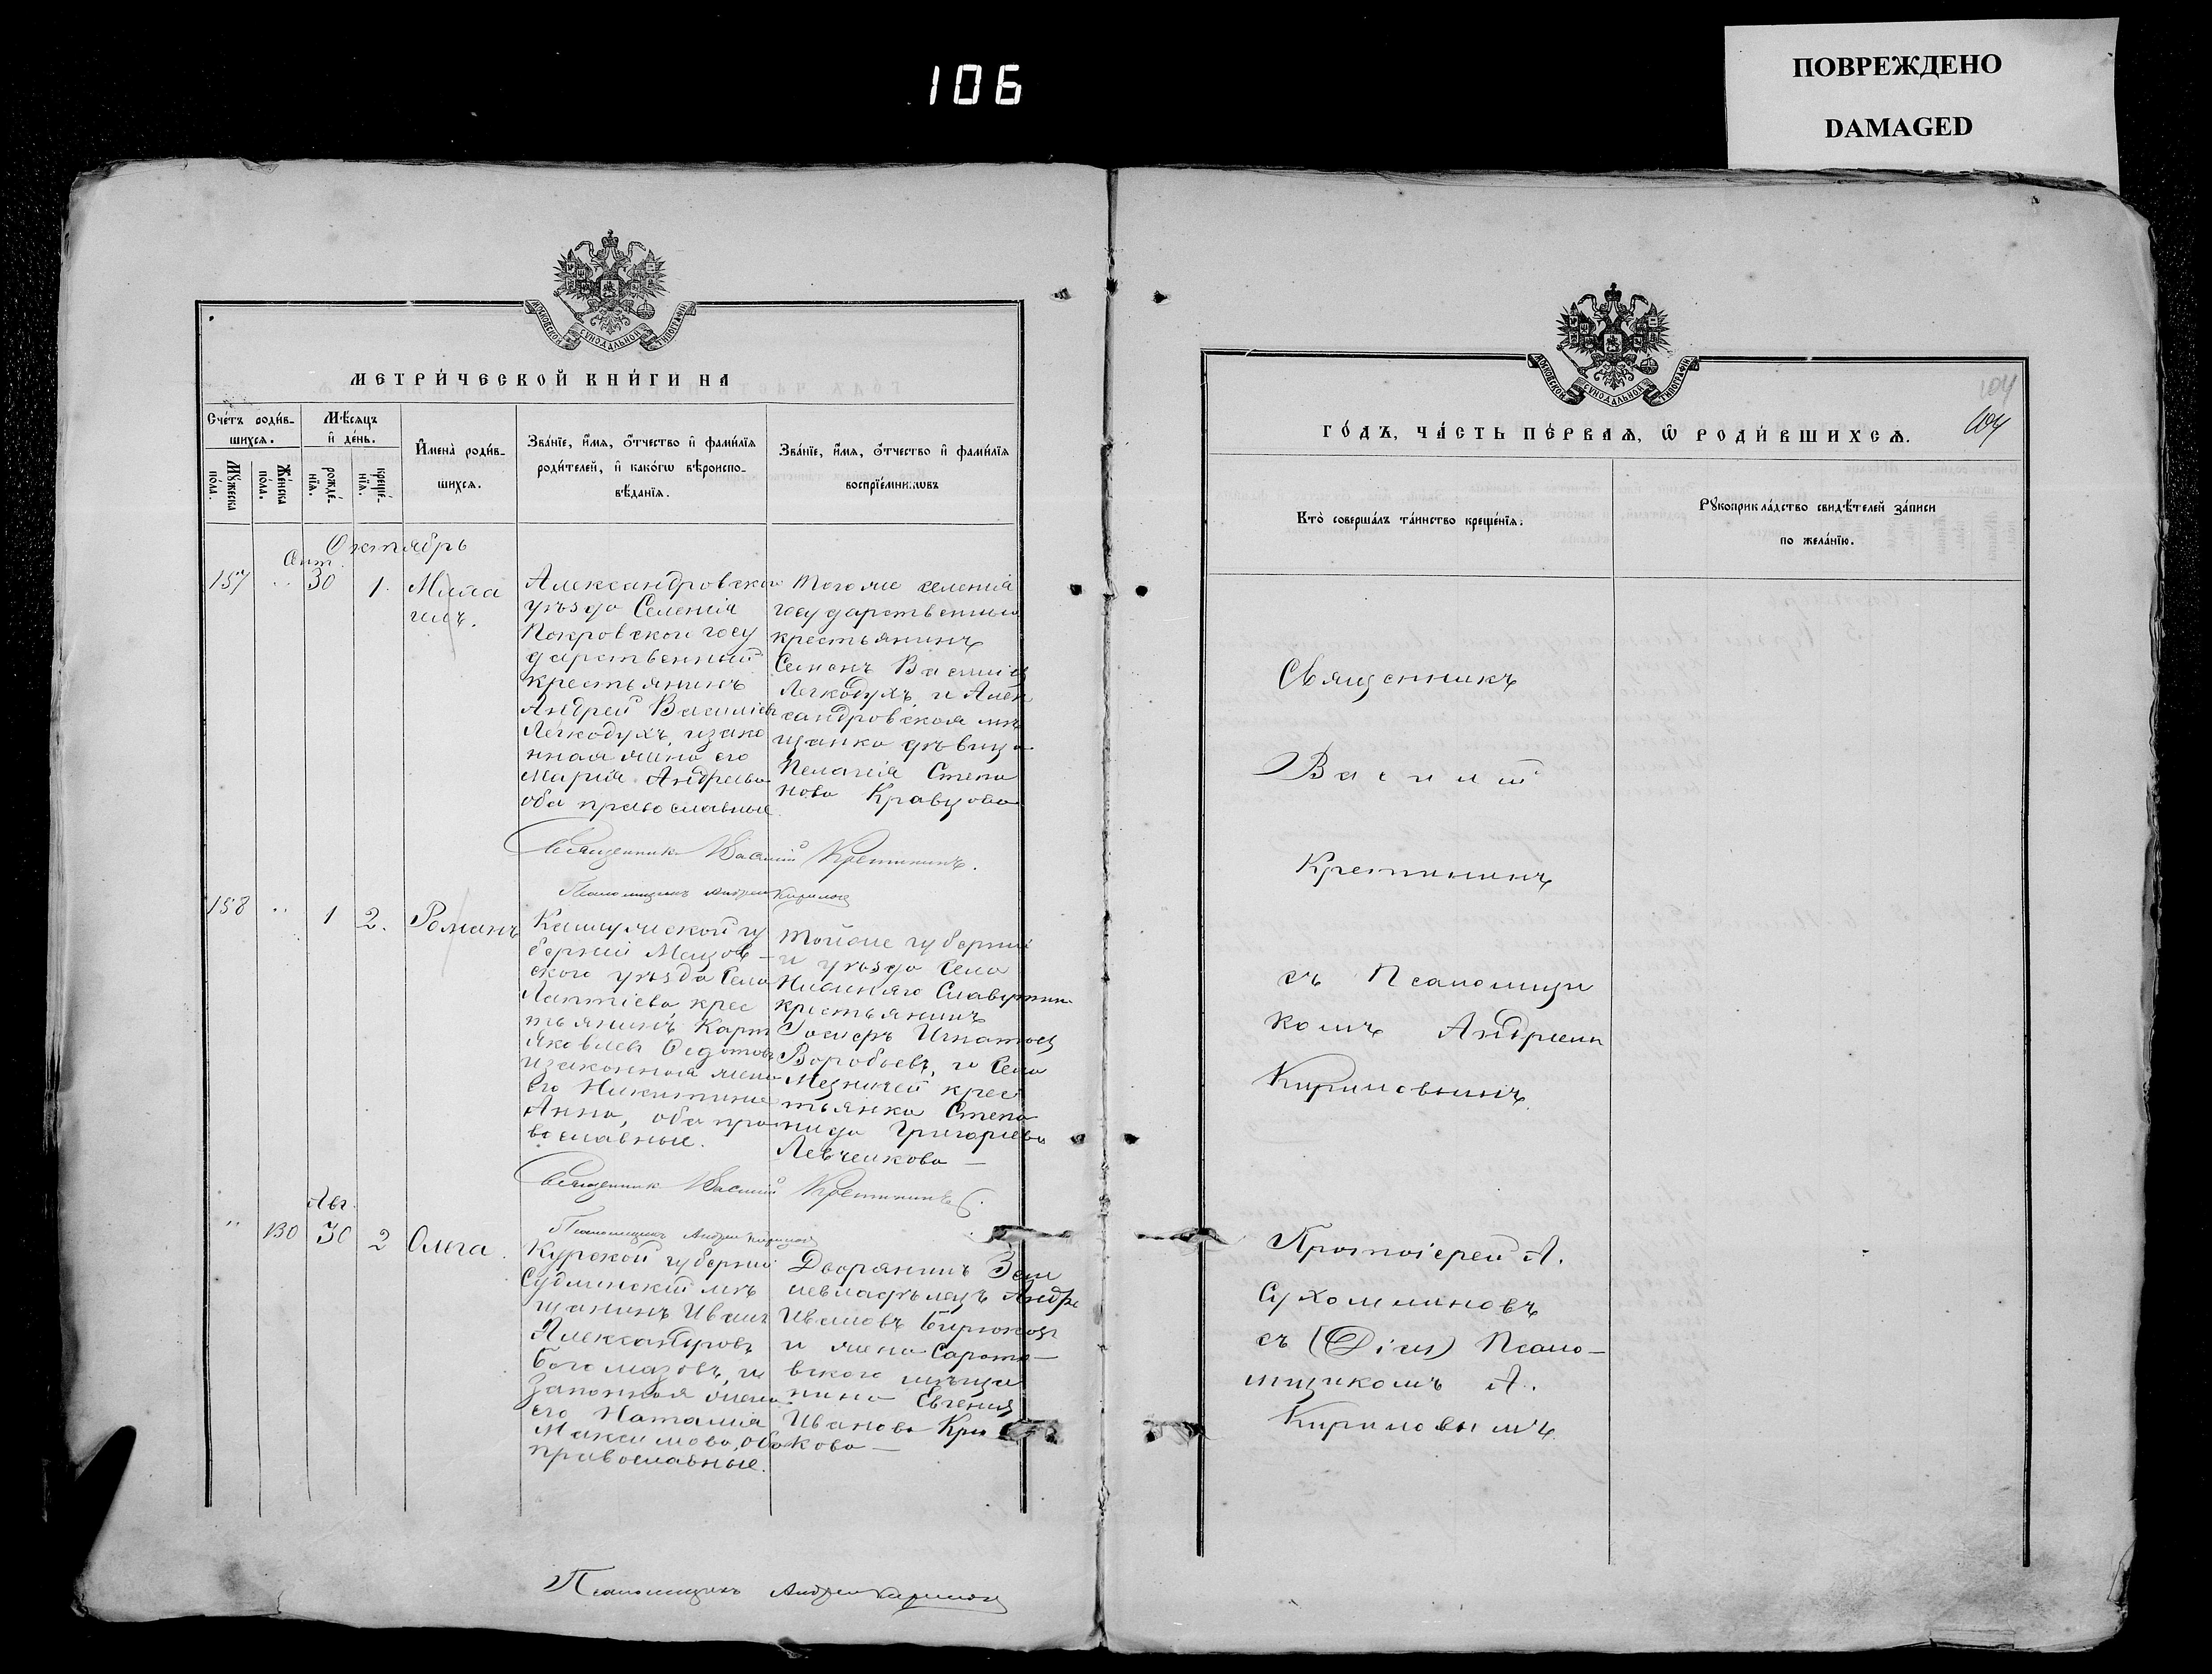 106
ПОВРЕЖДЕНО
DAMAGED
МОСКОВСКОЙ СѴНОДАЛЬНОЙ ТИПОГРАФІИ
МЕТРИ́ЧЕСКОЙ КНИ́ГИ НА
Сче́тъ роди́в-
шихся.
Мѣ́сяцъ
и҆ де́нь.
Мꙋ́жеска
по́ла.
Же́нска
по́ла.
рожде́-
нїѧ.
креще́-
нїѧ.
И҆мена̀ роди́в-
шихся.
Зва́нїе, и҆́мя, ѻ҆́тчество и҆ фами́лїя
роди́телей, и҆ како́гѡ вѣроиспо-
вѣ́данїя.
Зва́нїе, и҆́мя, ѻ҆́тчество и҆ фами́лїя
воспрїе́мниковъ
Октябрь
Сент.
157 " 30 1. Миха
илъ.
Александровскаго
уѣзда Селенія
Покровскои госу
дарственный
крестьянинъ
Андрей Василіевъ
Легкодухъ, изако
нная жена его
Марія Андреева
оба православные
Тогоже селенія
государственный
крестьянинъ
Семенъ Василіевъ
Легкодухъ, и Алек
сандровская мѣ
щанка дѣвица
Пелагія Степа
нова Кравцова
Священникъ Василій Кретининъ.
Псаломщикъ Андрей Кириловъ
158 " 1 2. Романъ
Калужской гу
берніи
ского уѣзда Села
крес
тьянинъ
Яковлевъ Федотовъ
изаконная жена
его Никитина
Анна, оба пра
вославные.
Тойже губерніи
и уѣзда Села
крестьянинъ
Іосифъ Игнатовъ
Воробьевъ, и Села
крес
тьянка Степа
нида Григорьева
Левченкова —
Священникъ Василій Кретининъ.
Авг.
" 130 30 2 Ольга.
Псаломщикъ Андрей Кириловъ
Курской губерніи
Суджинскій мѣ
щанинъ Иванъ
Александровъ
Богомазовъ, и
Законная жена
его Наталія
Максимова, оба
православные.
Дворянинъ Зем
левладѣлецъ Андре
Ивановъ Бирюковъ
и жена Сарато
вского мѣща
нина Евгенія
Иванова
кова —
Псаломщикъ Андрей Кириловъ
МОСКОВСКОЙ СѴНОДАЛЬНОЙ ТИПОГРАФІИ
104
104
ГО́ДЪ, ЧА́СТЬ ПЕ́РВАЯ, Ѡ҆ РОДИ́ВШИХСЯ.
Кто̀ соверша́лъ та́инство креще́нїя.
Рꙋкоприкла́дство свидѣ́телей за́писи
по жела́нїю.
Священникъ
Василій
Кретининъ
съ Псаломщи
комъ Андреемъ
Кириловымъ
Протоіерей А.
Сухомлиновъ
съ (Dicus) Псало-
мщикомъ А.
Кириловымъ